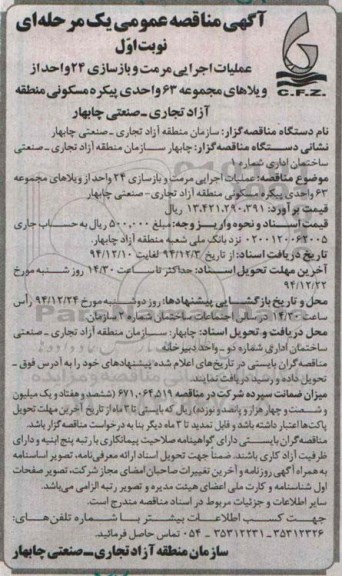 آگهی مناقصه عمومی یک مرحله‌ای
نوبت اوّل
عملیات اجرایی مرمت و بازسازی ۲۴ واحد از
ویلاهای مجموعه ۶۳ واحدی پیکره مسکونی منطقه
آزاد تجاری ـ صنعتی چابهار
C.F.Z.
نام دستگاه مناقصه‌گزار: سازمان منطقه آزاد تجاری ـ صنعتی چابهار
نشانی دستگاه مناقصه‌گزار: چابهار سازمان منطقه آزاد تجاری ـ صنعتی
ساختمان اداری شماره
موضوع مناقصه: عملیات اجرایی مرمت و بازسازی ۲۴ واحد از ویلاهای مجموعه
۶۳ واحدی پیکره مسکونی منطقه آزاد تجاری- صنعتی چابهار
قیمت برآورد: ۱۳،۴۲۱،۲۹۰،۳۹۱ ریال
قیمت اسناد و نحوه واریز وجه: مبلغ ۵۰۰،۰۰۰ ریال به حساب جاری
۰۲۰۰۱۲۰۰۶۲۰۰۵ نزد بانک ملی شعبه منطقه آزاد چابهار.
تاریخ دریافت اسناد: از تاریخ ۹۴/۱۲/۳ لغایت ۹۴/۱۲/۱۰
آخرین مهلت تحویل اسناد: حداکثر تا ساعت ۱۴/۳۰ روز شنبه مورخ
۹۴/۱۲/۲۲
محل و تاریخ بازگشایی پیشنهادها: روز دوشنبه مورخ ۹۴/۱۲/۲۴ رأس
ساعت ۱۴/۳۰ در سالن اجتماعات ساختمان شماره ۲ سازمان
محل دریافت و تحویل اسناد: چابهار: سازمان منطقه آزاد تجاری ـ صنعتی
ساختمان اداری شماره دو ـ واحد دبیرخانه
مناقصه‌گران بایستی در تاریخ‌های اعلام شده پیشنهادهای خود را به آدرس فوق ـ
تحویل داده و رسید دریافت نمایند.
میزان ضمانت سپرده شرکت در مناقصه ۶۷۱،۰۶۴،۵۱۹ (ششصد و هفتاد و یک میلیون
و شصت و چهار هزار و پانصد و نوزده) ریال که بایستی تا ۳ ماه از تاریخ آخرین مهلت تحویل
پاکت‌ها اعتبار داشته باشد و قابل تمدید تا ۳ ماه دیگر بنا به درخواست مناقصه گزار باشد.
مناقصه‌گران بایستی دارای گواهینامه صلاحیت پیمانکاری با رتبه پنج ابنیه و دارای
ظرفیت آزاد کاری باشند. ضمناً جهت تحویل اسناد ارائه معرفی‌نامه، تصویر اساسنامه
به همراه آگهی روزنامه و آخرین تغییرات صاحبان امضای مجاز شرکت، تصویر صفحات
اول شناسنامه و کارت ملی اعضای هیئت مدیره و تصویر رتبه الزامی می‌باشد.
سایر اطلاعات و جزئیات مربوط در اسناد مناقصه مندرج است.
جهت کسب اطلاعات بیشتر با شماره تلفن‌های:
۳۵۳۱۲۳۲۶ ـ ۳۵۳۱۲۲۳۱ ـ ۰۵۴ تماس حاصل فرمائید.
سازمان منطقه آزاد تجاری ـ صنعتی چابهار